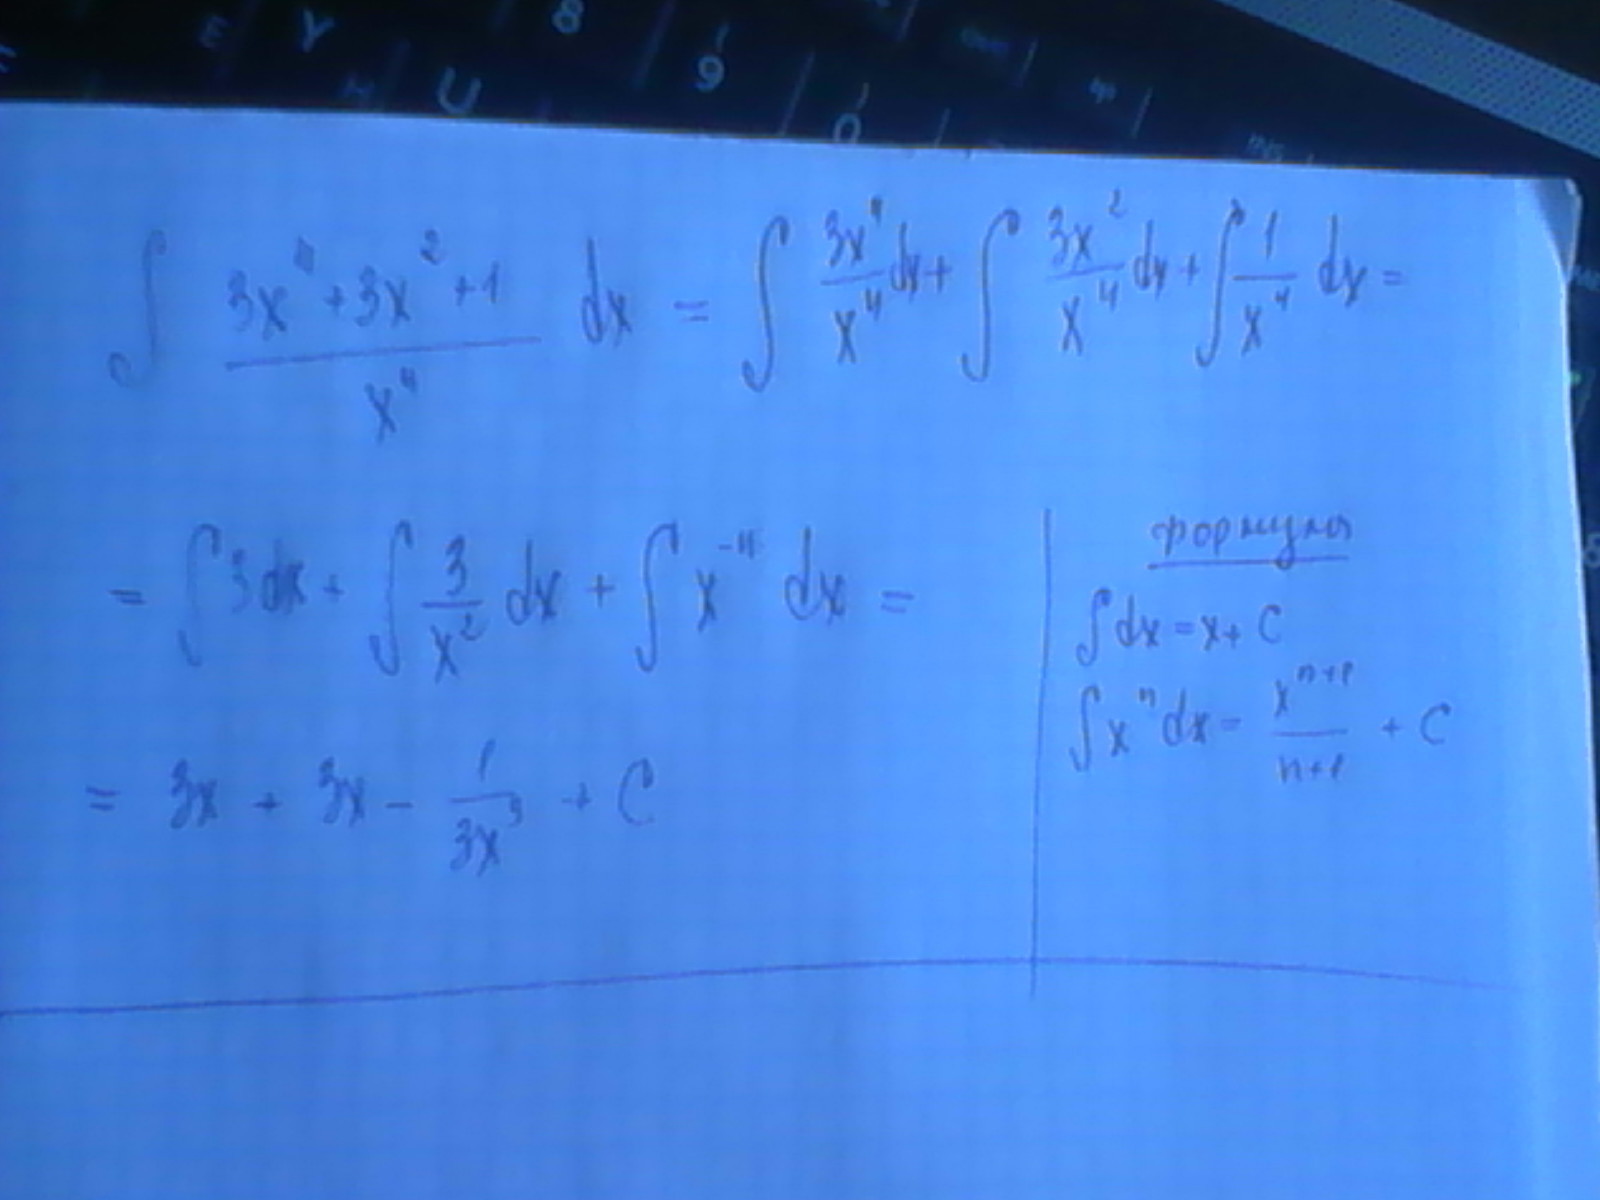 E Y 8 9
U 0
∫ (3x⁴+3x²+1)/x⁴ dx = ∫ 3x⁴/x⁴ dx + ∫ 3x²/x⁴ dx + ∫ 1/x⁴ dx =
= ∫ 3dx + ∫ 3/x² dx + ∫ x⁻⁴ dx =
= 3x + 3x - 1/3x³ + C
формулы
∫ dx = x + C
∫ xⁿ dx = xⁿ⁺¹/n+1 + C